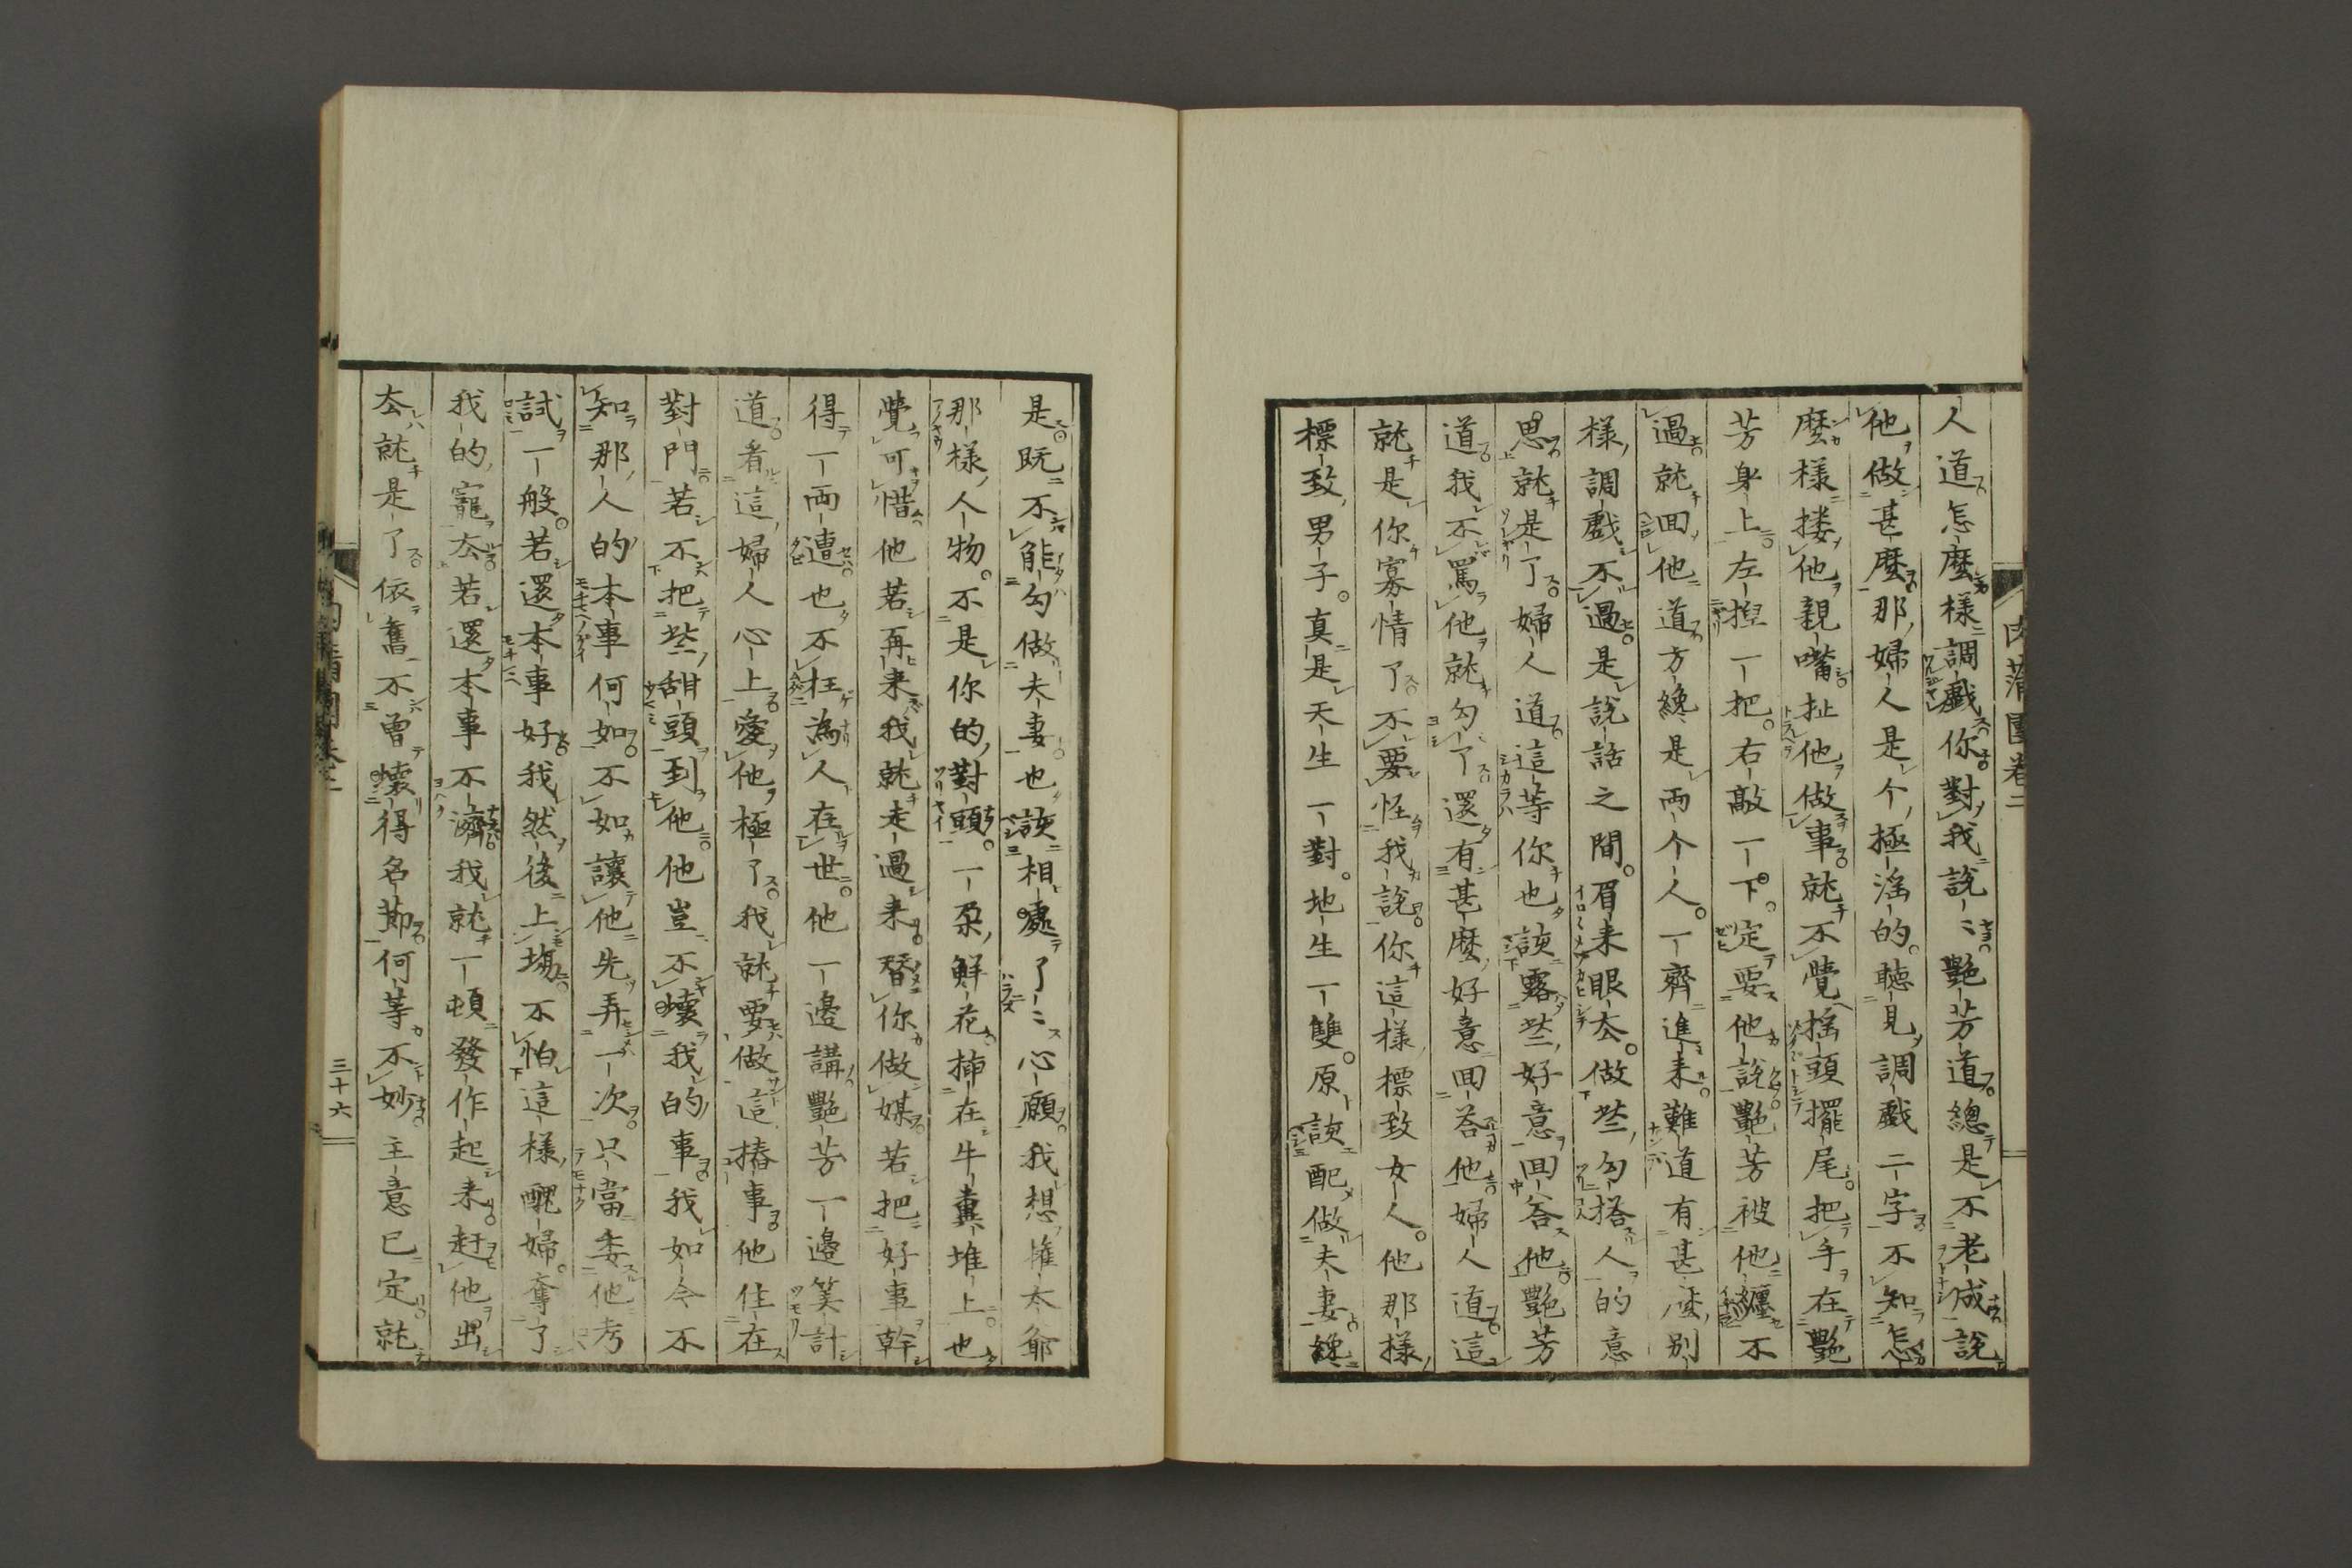 肉蒲團卷二
人道怎麼樣調戲你對我說〻艷芳道總是不老成說
他做甚麼那婦人是个極滛的聽見調戲二字不知怎
麼樣摟他親嘴扯他做事就不覺搖頭擺尾把手在艷
芳身上左揑一把右敲一下定要他說艷芳被他纏不
過就回他道方纔是两个人一齊進来難道有甚庅别
樣調戲不過是說話之間眉来眼去做些勾搭人的意
思就是了婦人道這等你也該露些好意回答他艷芳
道我不罵他就勾了還有甚麼好意回答他婦人道這
就是你寡情了不要怪我說你這樣標致女人他那樣
標致男子真是天生一對地生一雙原該配做夫妻纔
是既不能勾做夫妻也該相處了〻心願我想權太爺
那樣人物不是你的對頭一朶鮮花揷在牛糞堆上也
覺可惜他若再来我就走過来替你做媒若把好事幹
得一两遭也不枉為人在世他一邊講艷芳一邊筭計
道看這婦人心上愛他極了我就要做這椿事他住在
對門若不把些甜頭到他他豈不壞我的事我如今不
知那人的本事何如不如讓他先弄一次只當委他考
試一般若還本事好我然後上塲不怕這樣醜婦奪了
我的寵去若還本事不濟我就一頓發作起来赶他出
去就是了依舊不曾壞得名節何等不妙主意已定就
三十六